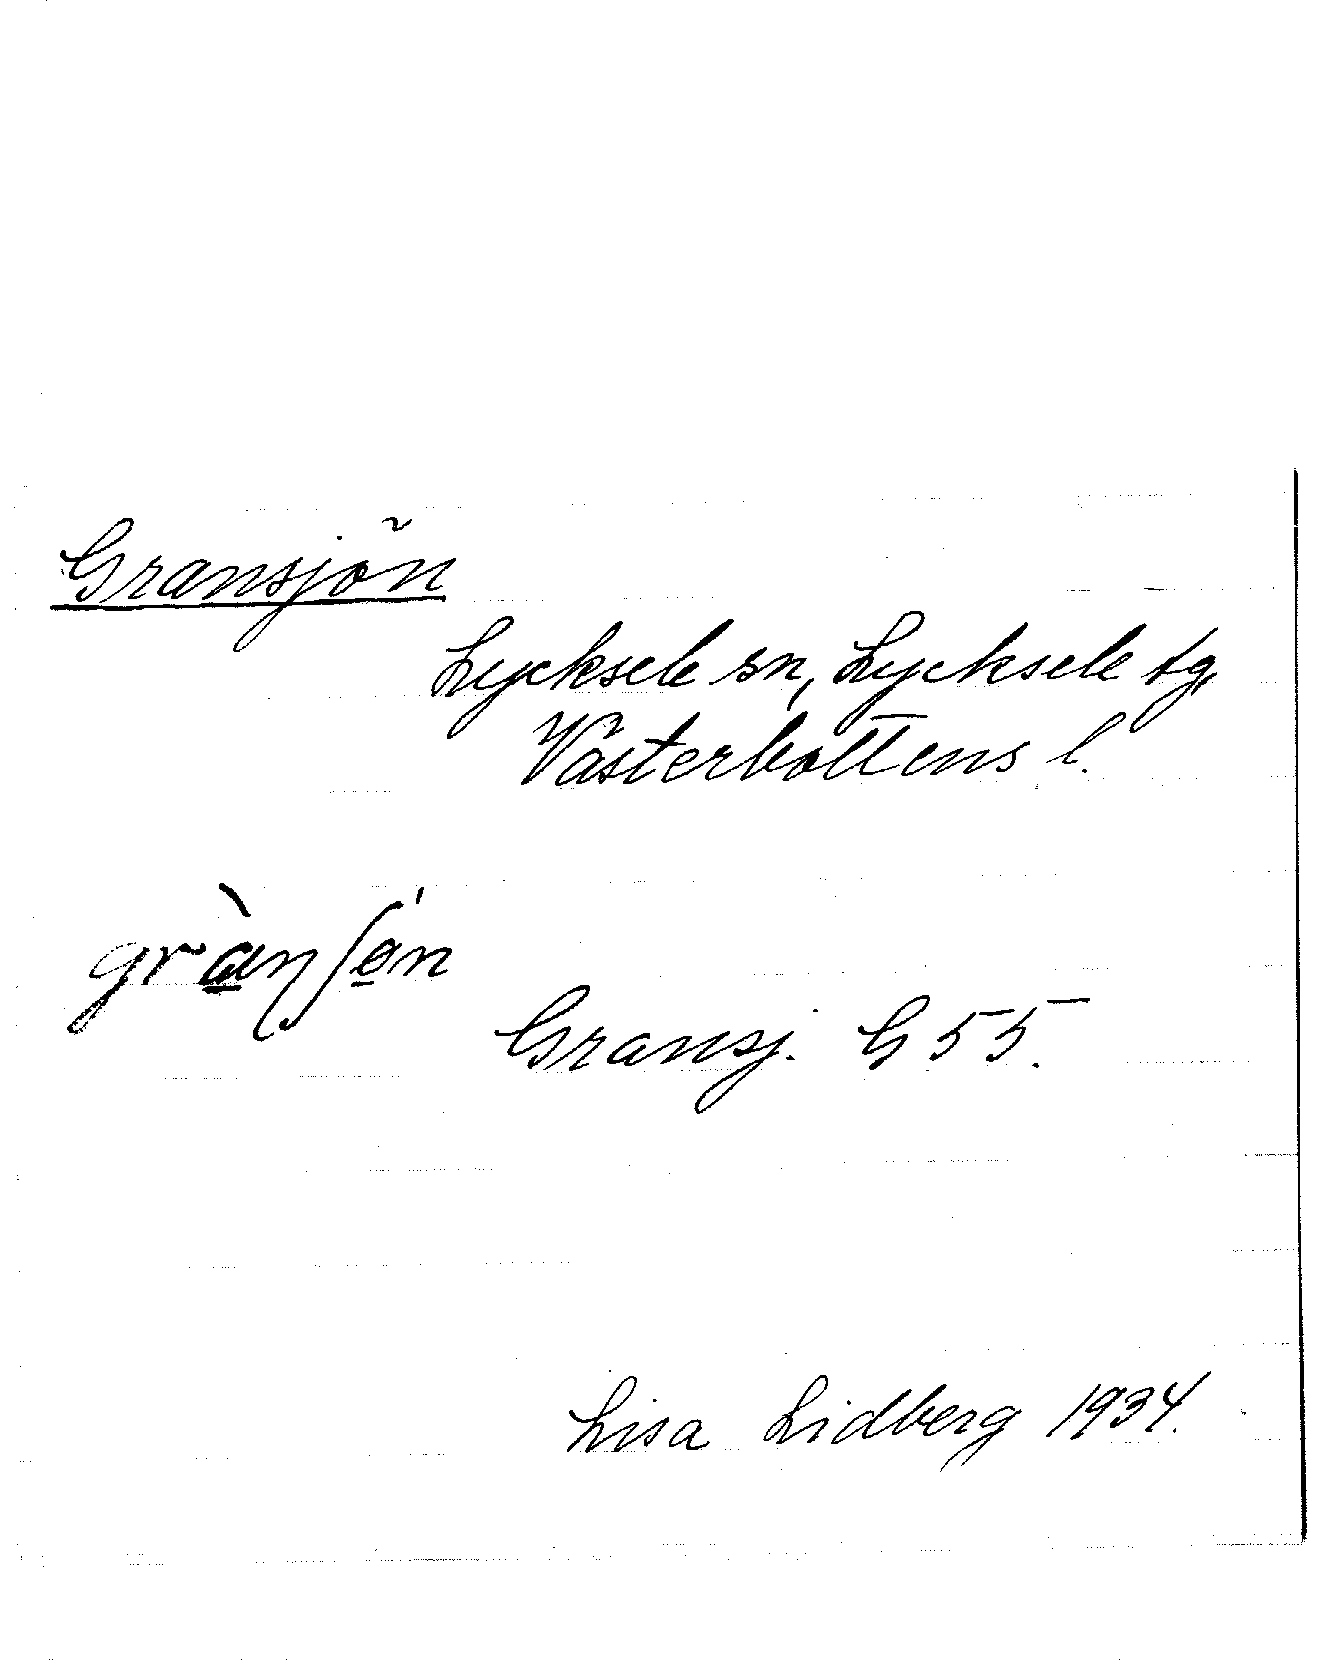 Gransjön
Lycksele sn, Lycksele tg,
Västerbottens l.
Gransj. G 55.
Lisa Lidberg 1934.